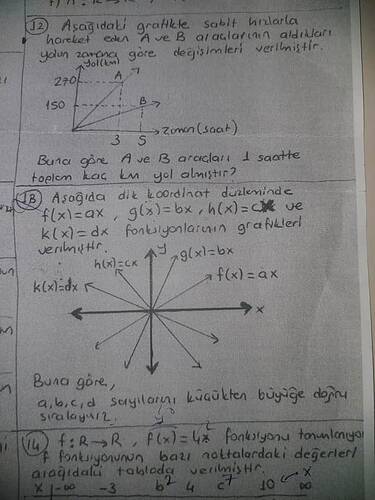 12 Aşağıdaki grafikte sabit hızlarla
hareket eden A ve B araçlarının aldıkları
yolun zamana göre değişimleri verilmiştir.
Yol(km)
270
A
150
B
3 5
Zaman(saat)
Buna göre A ve B araçları 1 saatte
toplam kaç km yol almıştır?
13 Aşağıda dik koordinat düzleminde
f(x)=ax, g(x)=bx, h(x)=cx ve
k(x)=dx fonksiyonlarının grafikleri
verilmiştir.
y
g(x)=bx
h(x)=cx
f(x)=ax
k(x)=dx
x
Buna göre,
a,b,c,d sayılarını küçükten büyüğe doğru
sıralayınız.
14 f:R→R, f(x)=4x² fonksiyonu tanımlanıyor
f fonksiyonunun bazı noktalardaki değerleri
aşağıdaki tabloda verilmiştir.
x
x -∞ -3 b² 4 c⁷ 10 ∞